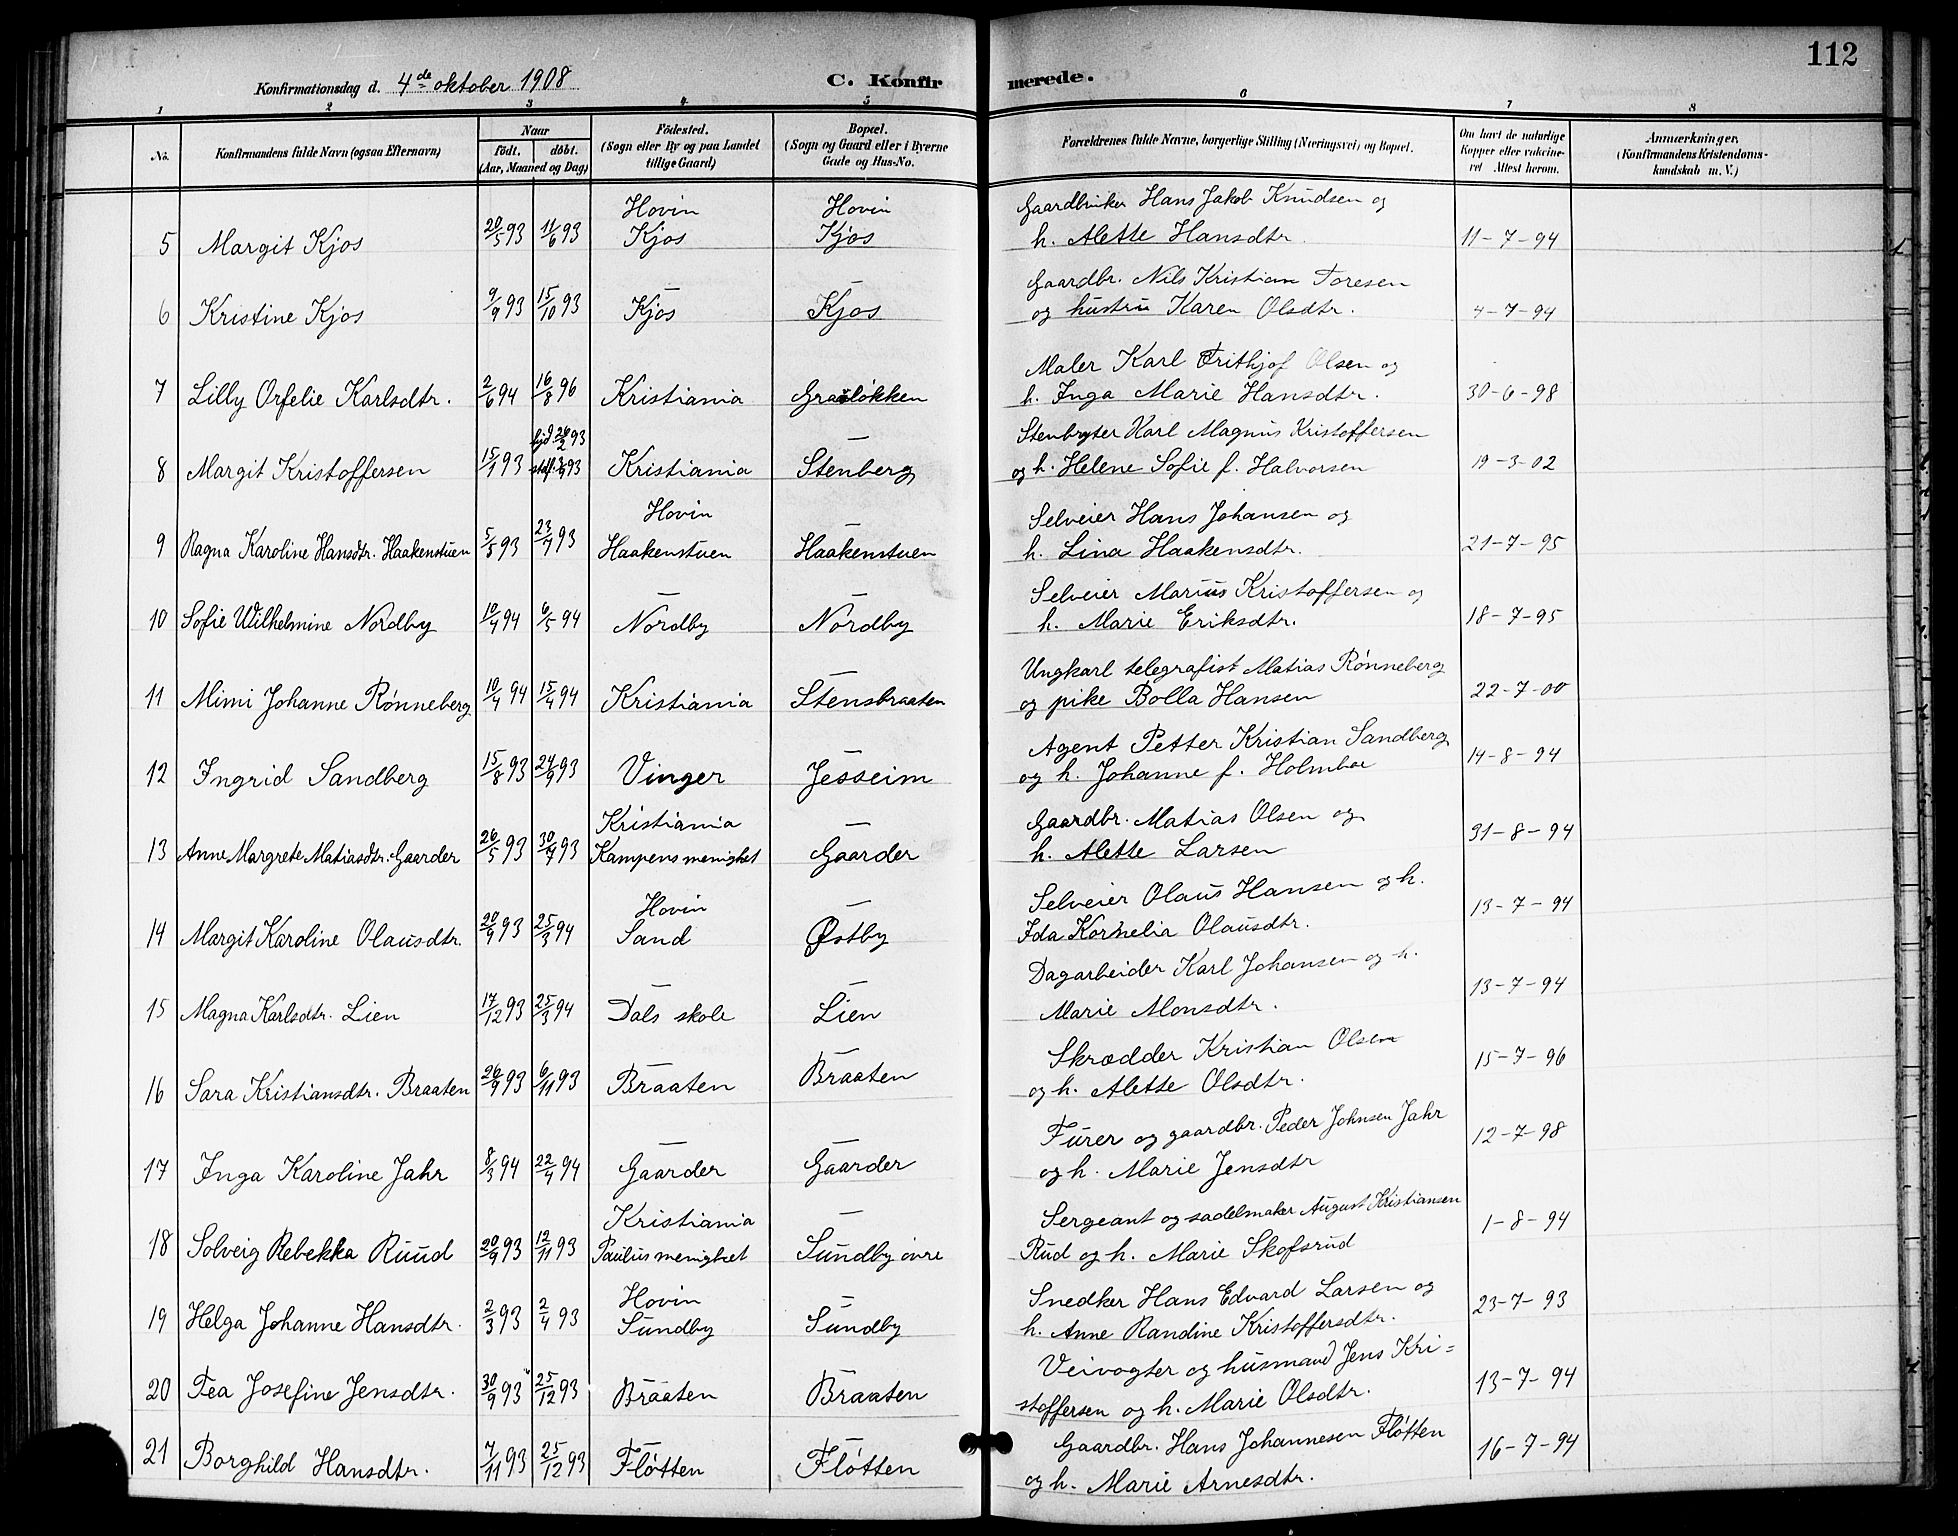 112
Konfirmationsdag d. 4de oktober 1908 C. Konfirmerede.
1 2 3 4 5 6 7 8
No. Konfirmandens fulde Navn (ogsaa Efternavn) Naar födt. döbt. (Aar, Maaned og Dag) Födested. (Sogn eller By og paa Landet tillige Gaard) Bopæl. (Sogn og Gaard eller i Byerne Gade og Hus-No. Forældrenes fulde Navne, borgerlige Stilling (Næringsvei) og Bopæl. Om havt de naturlige Kopper eller vakcineret Attest herom. Anmærkninger. (Konfirmandens Kristendomskundskab m. V.)
Hovin Hovin Gaardbruker Hans Jakob Knudsen og
5 Margit Kjos 20/5 93 11/6 93 Kjos Kjos h. Alette Hansdtr. 11-7-94
— — Gaardbr. Nils Kristian Toresen
6 Kristine Kjos 9/9 93 15/10 93 Kjos Kjos og hustru Karen Olsdtr. 4-7-94
Maler Karl Frithjof Olsen og
7 Lilly Orfelie Karlsdtr. 2/6 94 16/8 96 Kristiania Grasløkken h. Inga Marie Hansdtr. 30-6-98
26/2 93 — Stenbryter Karl Magnus Kristoffersen
8 Margit Kristoffersen 15/1 93 93 Kristiania Stenberg og h. Helene Sofie f. Halvorsen 19-3-02
Hovin — Selveier Hans Johansen og
9 Ragna Karoline Hansdtr. Haakenstuen 5/5 93 23/7 93 Haakenstuen Haakenstuen h. Lina Haakensdtr. 21-7-95
— — Selveier Marius Kristoffersen og
10 Sofie Wilhelmine Nordby 10/4 94 6/5 94 Nordby Nordby h. Marie Eriksdtr. 18-7-95
— Ungkarl telegrafist Matias Rønneberg
11 Mimi Johanne Rønneberg 10/4 94 15/4 94 Kristiania Stensbraaten og pike Bolla Hansen 22-7-00
— Agent Petter Kristian Sandberg
12 Ingrid Sandberg 15/8 93 24/9 93 Vinger Jesseim og h. Johanne f. Holmboe 14-8-94
Kristiania — Gaardbr. Matias Olsen og
13 Anne Margrete Matiasdtr. Gaarder 26/5 93 30/7 93 Kampens menighet Gaarder h. Alette Larsen 31-8-94
Hovin — Selveier Olaus Hansen og h.
14 Margit Karoline Olausdtr. 20/9 93 25/3 94 Sand Østby Ida Kornelia Olausdtr. 13-7-94
— — Dagarbeider Karl Johansen og h.
15 Magna Karlsdtr. Lien 17/12 93 25/3 94 Dals skole Lien Marie Monsdtr. 13-7-94
— — Skrædder Kristian Olsen
16 Sara Kristiansdtr. Braaten 26/9 93 6/11 93 Braaten Braaten og h. Alette Olsdtr. 15-7-96
— — Furer og gaardbr. Peder Johnsen Jahr
17 Inga Karoline Jahr 8/3 94 22/4 94 Gaarder Gaarder og h. Marie Jensdtr 12-7-98
Kristiania — Sergeant og sadelmaker August Kristiansen
18 Solveig Rebekka Ruud 20/9 93 12/11 93 Paulus menighet Sundby øvre Rud og h. Marie Skofsrud 1-8-94
Hovin — Snedker Hans Edvard Larsen og
19 Helga Johanne Hansdtr. 2/3 93 2/4 93 Sundby Sundby h. Anne Randine Kristoffersdtr. 23-7-93
— — Veivogter og husmand Jens Kri=
20 Tea Josefine Jensdtr. 30/9 93 25/12 93 Braaten Braaten stoffersen og h. Marie Olsdtr. 13-7-94
— — Gaardbr. Hans Johannesen Fløtten
21 Borghild Hansdtr. 7/11 93 25/12 93 Fløtten Fløtten og h. Marie Arnesdtr. 16-7-94